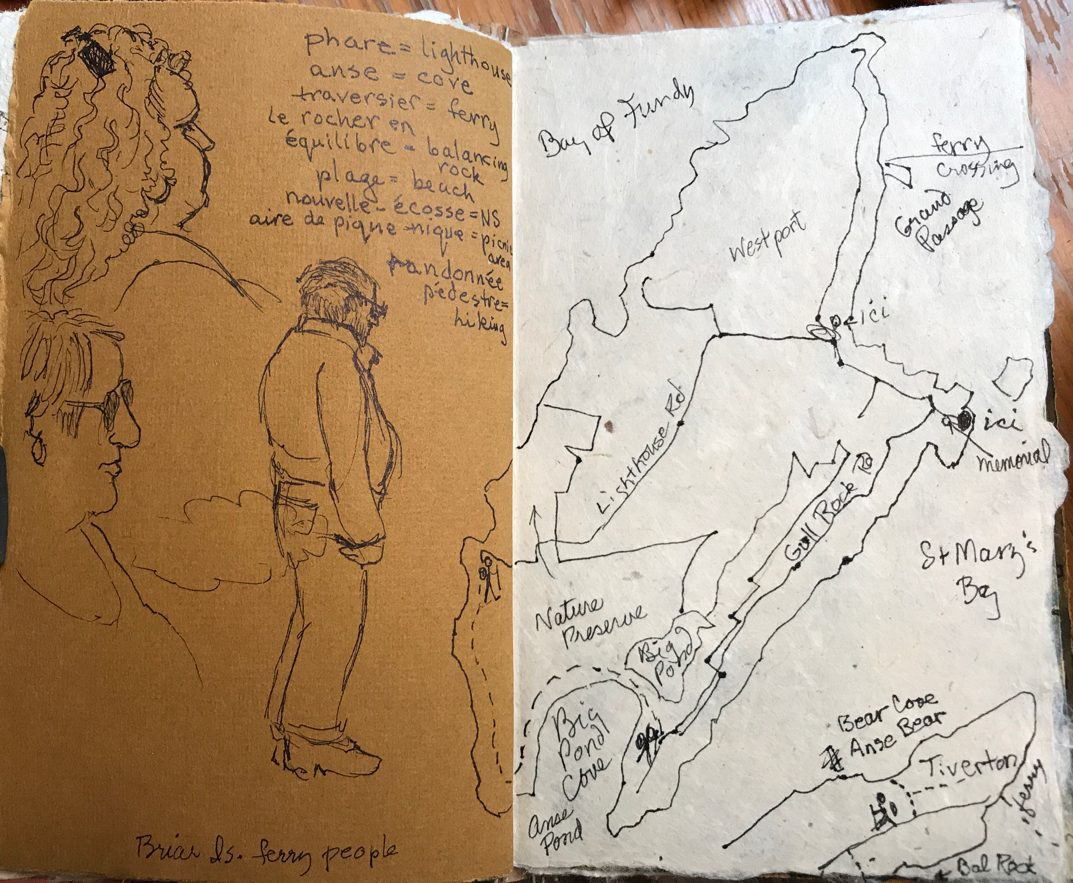 phare = lighthouse
anse = cove
traversier = ferry
le rocher en
équilibre = balancing
rock
plage = beach
nouvelle-écosse = NS
aire de pique-nique = picnic
area
randonnée
pédestre =
hiking
Briar Is. ferry people
Bay of Fundy
ferry
crossing
Grand
Passage
Westport
ici
Lighthouse Rd
ici
memorial
Gull Rock Rd
St Mary's
Bay
Nature
Preserve
Big
Pond
Big
Pond
Cove
Anse
Pond
Bear Cove
Anse Bear
Tiverton
ferry
Bal Rock